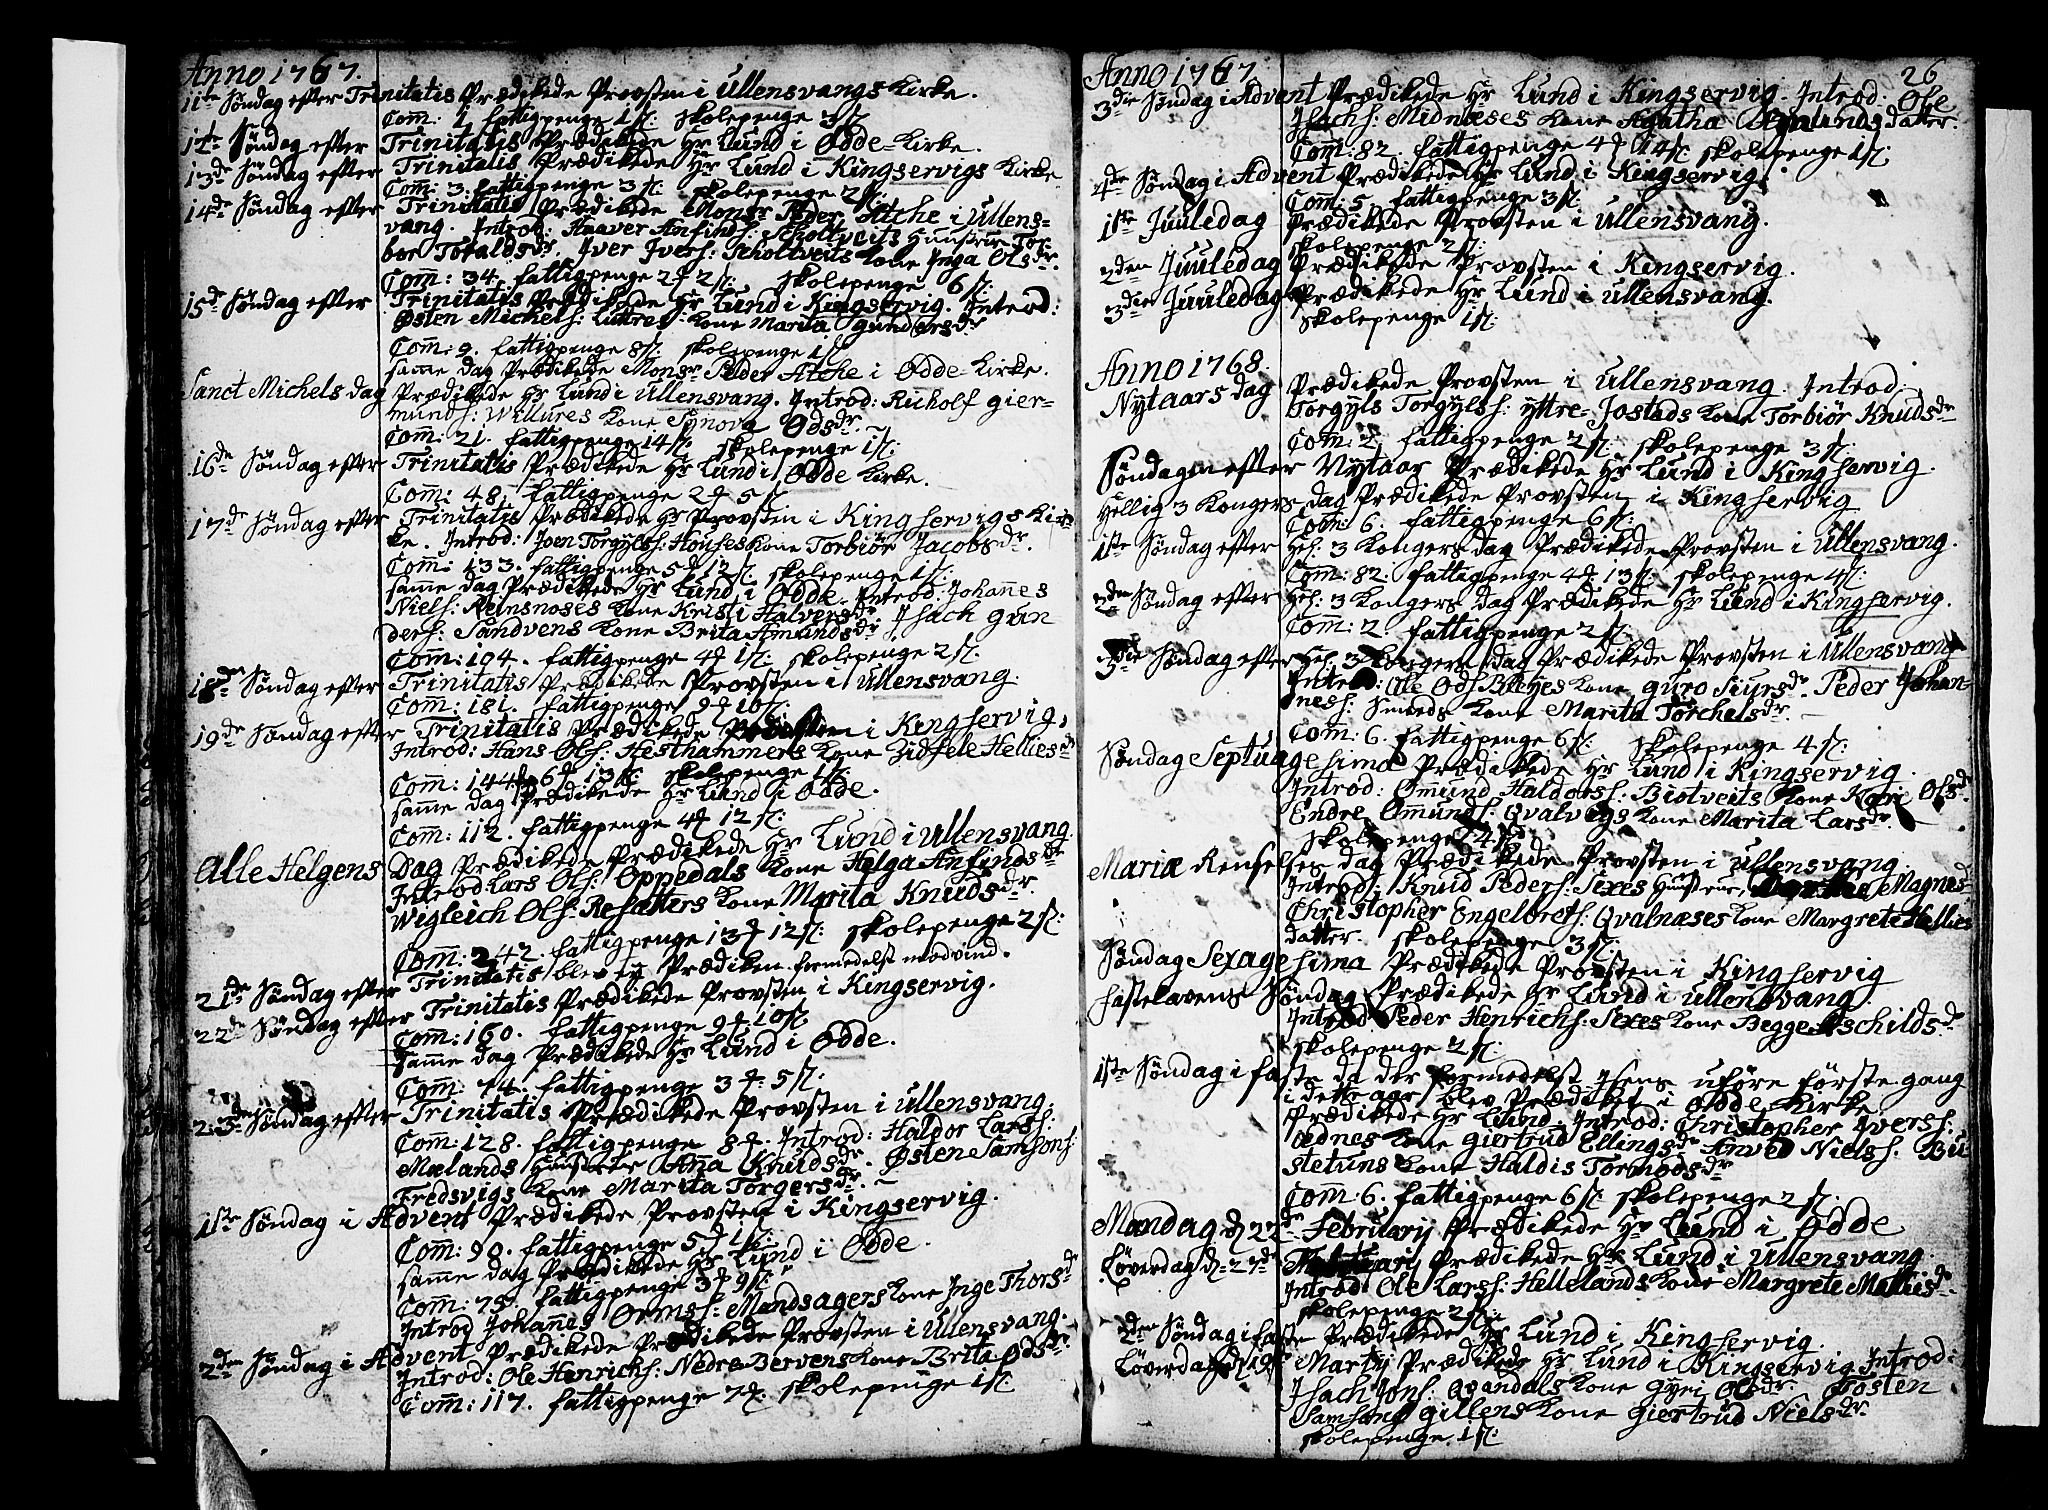 Anno 1767.
11te Søndag efter Trinitatis Prædikede Provsten i Ullensvangs Kirke.
Com: 1. fattigpenge 1 ß: skolepenge 3 ß
12te Søndag efter Trinitatis Prædikede Hr Lund i Odde Kirke.
13de Søndag efter Trinitatis Prædikede Hr Lund i Kingservigs Kirke.
Com: 3. fattigpenge 3 ß: skolepenge 2 ß:
14de Søndag efter Trinitatis Prædikede Monsr Peder Atche i Ullens-
vang. Introd: Anfinds: Scholtveits Hustrue Tor-
bor Toraldsdr. Iver Ivers: Scholtveits Kone Inga Olsdr.
Com: 34. fattigpenge 2 2 ß: skolepenge 6 ß:
15de Søndag efter Trinitatis Prædikede Hr Lund i Kingservig. Introd:
Østen Michels: Luttres Kone Marita Gundersdr
Com: 9. fattigpenge 8 ß: skolepenge 1 ß
samme dag Prædikede Monsr Peder Atche i Odde Kirke.
Sanct Michels dag Prædikede Hr Lund i Ullensvang. Introd: Richolf Gier-
munds: Willures Kone Synova Odsdr.
Com: 21. fattigpenge 14 ß skolepenge 1 ß:
16de Søndag efter Trinitatis Prædikede Hr Lund i Odde Kirke.
Com: 48. fattigpenge 2 5 ß
17de Søndag efter Trinitatis Prædikede Hr Provsten i Kingservigs Kir-
ke. Introd: Joen Torgyls: Houses Kone Torbiør Jacobsdr.
Com: 133. fattigpenge 5 12 ß skolepenge 1 ß:
samme dag Prædikede Hr Lund i Odde. Introd: Johanes
Niels: Reinsnoses Kone Kristi Halversdr Isach Gun
ders: Sandvens Kone Brita Amundsdr
Com: 104. fattigpenge 4 1 ß: skolepenge 2 ß:
18de Søndag efter Trinitatis Prædikede Provsten i Ullensvang.
Com: 181. fattigpenge 9 10 ß:
19de Søndag efter Trinitatis Prædikede Provsten i Kingservig.
Introd: Hans Ols: Hesthammers Kone Zidsele Helliesdr
Com: 144. 6 13 ß: skolepenge 1 ß:
samme dag Prædikede Hr Lund i Odde.
Com: 112. fattigpenge 4 12 ß:
Alle Helgens Dag Prædikede Hr Lund i Ullensvang.
Introd Lars Ols: Oppedals Kone Helga Anfindsdr
Wigleich Ols: Resætters Kone Marita Knudsdr.
Com: 242. fattigpenge 13 12 ß: skolepenge 2 ß:
21de Søndag efter Trinitatis blev ej Prædiken formedelst modvind.
22de Søndag efter Trinitatis Prædikede Provsten i Kingservig.
Com: 160. fattigpenge 9 10 ß
samme dag Prædikede Hr Lund i Odde.
Com: 74. fattigpenge 3 5 ß:
23de Søndag efter Trinitatis Prædikede Provsten i Ullensvang.
Com: 128. fattigpenge 8. Introd: Haldor Lars:
Mælands Hustrue Anna Knudsdr. Østen Samsons:
Fredsvigs Kone Marita Torgersdr.
1ste Søndag i Advent Prædikede Provsten i Kingservig.
Com: 90. fattigpenge 5 1 ß:
samme dag Prædikede Hr Lund i Odde.
Com: 75. fattigpenge 3 9 ß:
Introd Johanes Orms: Mandsagers Kone Inge Thorsdr
2den Søndag i Advent Prædikede Provsten i Ullensvang.
Introd: Ole Henrichs: Nedre Bervens Kone Brita Odsdr.
Com: 117. fattigpenge 7. skolepenge 1 ß
Anno 1767. 26
3die Søndag i Advent Prædikede Hr Lund i Kingservig. Introd: Ole
Isachs: Midnæses Kone Agatha Asmunds datter.
Com: 82. fattigpenge 4 14 ß skolepenge 1 ß:
4de Søndag i Advent Prædikede Hr Lund i Kingservig.
Com: 5. fattigpenge 3 ß:
1ste Juuledag Prædikede Provsten i Ullensvang.
skolepenge 2 ß:
2den Juuledag Prædikede Provsten i Kingservig.
3die Juuledag Prædikede Hr Lund i Ullensvang.
skolepenge 1 ß:
Anno 1768.
Nytaars dag Prædikede Provsten i Ullensvang. Introd:
Torgyls Torgyls: yttre-Jostads Kone Torbiør Knudsdr
Com: 2. fattigpenge 2 ß: skolepenge 3 ß:
Søndagen efter Nytaar Prædikede Hr Lund i Kingservig.
Hellig 3 Kongers dag Prædikede Provsten i Kingservig
Com: 6. fattigpenge 6 ß:
1ste Søndag efter Hel: 3 Kongers dag Prædikede Provsten i Ullensvang.
Com: 82. fattigpenge 4 13 ß: skolepenge 4 ß:
2den Søndag efter Hel: 3 Kongers dag Prædikede Hr Lund i Kingservig.
Com: 2. fattigpenge 2 ß:
3die Søndag efter Hel: 3 Kongers dag Prædikede Provsten i Ullensvang
Introd: Ole Ods Bleyes Kone Guro Siursdr. Peder Johan-
nes: Smeds Kone Marita Torchelsdr.
Com: 6. fattigpenge 6 ß: skolepenge 4 ß:
Søndag Septuagesima Prædikede Hr Lund i Kingservig.
Introd: Omund Haldors: Biotveits Kone Kari Olsdr.
Endre Omunds: Qvalvigs Kone Marita Larsdr.
skolepenge 4 ß
Mariæ Renselses dag Prædikede Provsten i Ullensvang.
Introd: Knud Peders: Sexes Hustrue Magnesdr
Christopher Engelbrets: Qvalnæses Kone Margrete Hellies
datter. skolepenge 3 ß:
Søndag Sexagesima Prædikede Provsten i Kingservig
Fastelavens Søndag Prædikede Hr Lund i Ullensvang.
Introd Peder Henrichs: Sexes Kone Begge Aschildsdr
skolepenge 2 ß:
1ste Søndag i faste da der formedelst Isens uføre første gang
i dette aar blev Prædiket i Odde Kirke
Prædikede Hr Lund. Introd: Christopher Ivers:
Ednes Kone Giertrud Ellingsdr Anved Niels: Bu
stetuns Kone Haldis Tormodsdr
Com: 6. fattigpenge 6 ß skolepenge 2 ß:
Mandag d 22de Februarij Prædikede Hr Lund i Odde
Løverdag d 27de Prædikede Hr Lund i Ullensvang.
Introd: Ole Lars: Hellelands Kone Margrete Mattiesdr.
skolepenge 2 ß:
2den Søndag i faste Prædikede Hr Lund i Kingservig.
Løverdag Martij Prædikede Hr Lund i Kingservig. Introd:
Isach Jons: Qvandals Kone Gyri Olsdr. Tosten
Samsons Gillens Kone Giertrud Nielsdr.
skolepenge 1 ß: